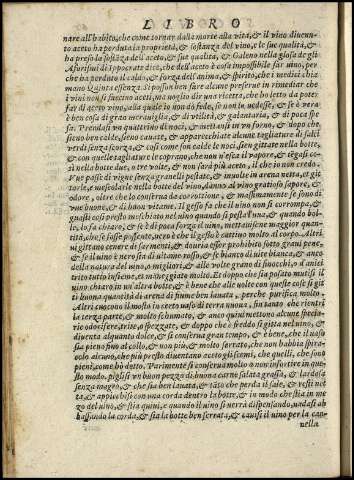 LIBRO
nare all'habito, che come tornar dalla morte alla vita, & il vino diuenu-
to aceto ha perduta la proprietà, & sostanza del vino, e le sue qualità, &
ha preso la sostanza dell'aceto, & sue qualità, & Galeno nella glosa de gli
Afforismi di Ippocrate dice, che dell'aceto è cosa impossibile far vino, per-
che ha perduto il caldo, & forza dell'anima, & spirito, che i medici chia
mano Quinta essenza. Si posson ben fare alcune preserue in rimediar che
i vini non si faccino aceti, ma voglio dir una ricetta, che ho letto da poter
far di aceto vino, alla quale io non dò fede, se non la vedesse, & se è vera
è ben cosa di gran merauiglia, & di vtilità, & galantaria, & di poca spe
sa. Prendasi vn quattrino di noci, & mettansi in vn forno, & dopo che
sieno ben calde, sieno cauate, & apparecchiate alcune tagliature di salci
verdi senza scorza, & così come son calde le noci, sien gittate nella botte,
& con quelle tagliature le coprano, che non n'esca il vapore, & tegasi co-
sì nella botte due, o tre volte, & non sarà più aceto, il che io non credo.
Fue passe di vigne senza granelli pestate, & inuolte in arena netta, et git
torle, e mescolarle nella botte del vino, danno al vino gratioso sapore, &
odore, oltre che lo conserua da corrottione, & massimamente se sono di
vue buone, & di buon vitame. Il gesso fa che il vino non si corrompa, &
guasti così presto meschiato nel vino quando si pesta l'uua, & quando bol-
le, lo fa chiaro, & se è di poca forza il vino, metta uisene maggior quan-
tità, che se fosse possente, vero è che il gesso è cattiuo molto al corpo. Altri
vi gittano cenere di sarmenti, & douria esser prohibito sotto graui pene,
& se il vino è nero sia di ulimo rosso, & se bianco di vite bianca, & anco
della natura del vino, o migliori, & alle volte grani di finocchio, o d'anici
trito tutto insieme, et maneggiato molto. Et doppo che sia posato mutisi il
vino chiaro in un'altra botte, & è bene che alle volte con queste cose si git
ti buona quantità di arena di fiume ben lauata, perche purifica molto.
Altri cuocono il mosto in certo uaso di terra nuoua, fin tanto che rientri
la terza parte, & molto schumato, & anco quiui mettono alcune specie-
rie odorifere, trite, o spezzate, & doppo che è freddo si gitta nel uino, &
diuenta alquanto dolce, & si conserua gran tempo, & è bene, che il uaso
sia pieno fin al collo, & non più, & molto serrato, che non habbia spira-
colo alcuno, che più presto diuentano aceto gli scemi, che quelli, che sono
pieni, come hò detto. Parimente si conserua molto o non inforTire in que-
sto modo. piglisi vn buon pezzo di buona carne salata grassa, & lardosa
senza magro, & che sia ben lauata, & tãto che perda il sale, & resti net
ta, & appicchisi con vna corda dentro la botte, & in modo che stia in me
zo del vino, & stia quiui, e quando il uino si uerrà dispensando, uadasi ab
bassando la corda, & stia la botte ben serrata, & cauisi il vino per la can-
nella